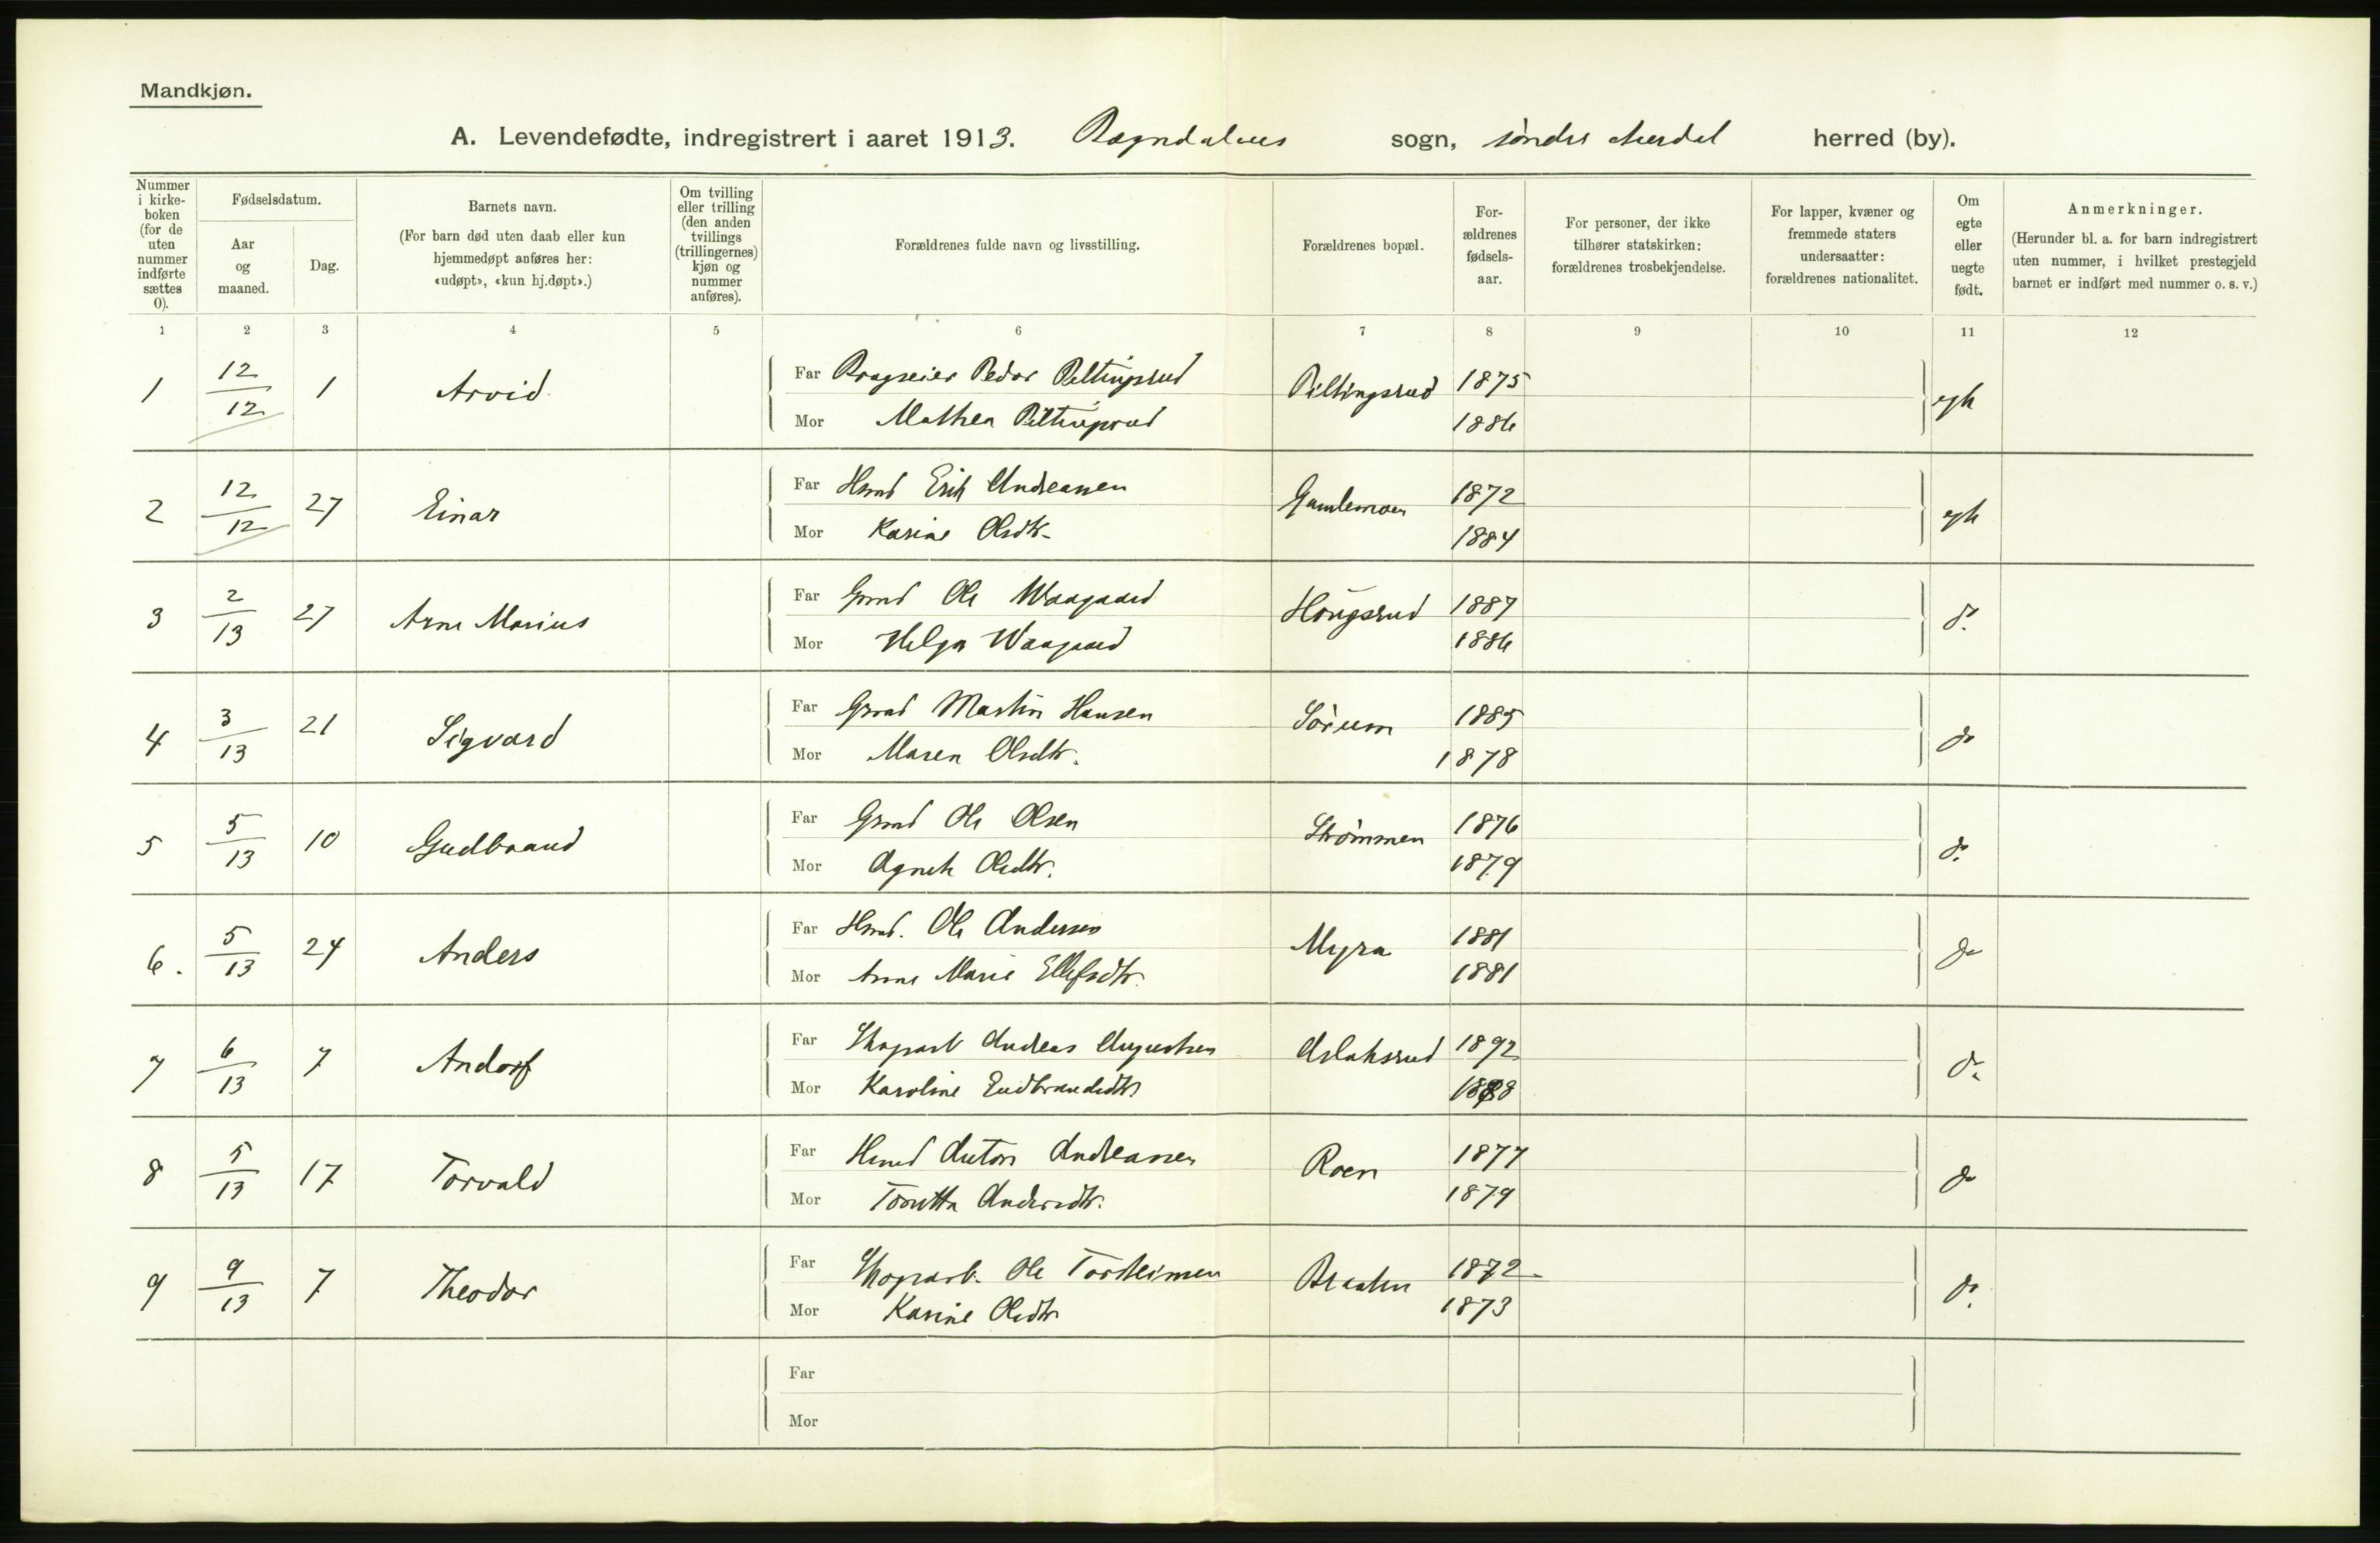 Mandkjøn.
A. Levendefødte, indregistrert i aaret 1913. Bagndalens sogn, søndre Aurdal herred (by).
Nummer i kirkeboken (for de uten nummer indførte sættes 0).
Fødselsdatum.
Aar og maaned.
Dag.
Barnets navn.
(For barn død uten daab eller kun hjemmedøpt anføres her: «udøpt», «kun hj.døpt».)
Om tvilling eller trilling (den anden tvillings (trillingernes) kjøn og nummer anføres).
Forældrenes fulde navn og livsstilling.
Forældrenes bopæl.
Forældrenes fødselsaar.
For personer, der ikke tilhører statskirken: forældrenes trosbekjendelse.
For lapper, kvæner og fremmede staters undersaatter: forældrenes nationalitet.
Om egte eller uegte født.
Anmerkninger.
(Herunder bl. a. for barn indregistrert uten nummer, i hvilket prestegjeld barnet er indført med nummer o. s. v.)
1 2 3 4 5 6 7 8 9 10 11 12
1 12/12 1 Arvid Far Peder Piltingsrud Piltingsrud 1875 egte
Mor Mathea Piltingsrud 1886
2 12/12 27 Einar Far Hmd Erik Andreassen Gamlemoen 1872 egte
Mor Karine Olsdtr. 1884
3 2/13 27 Arne Marius Far Grmd Ole Waagaard Høugsrud 1887 do.
Mor Helga Waagaard 1886
4 3/13 21 Sigvard Far Grmd Martin Hansen Sørum 1885 do
Mor Maren Olsdtr. 1878
5 5/13 10 Gudbrand Far Grmd Ole Olsen Strømmen 1876 do.
Mor Agnete Olsdtr. 1879
6. 5/13 24 Anders Far Hmd. Ole Andersen Myra 1881 do
Mor Anne Marie Ellefsdtr. 1881
7 6/13 7 Andorf Far Skogarb Andreas Augustsen Aslaksrud 1892 do.
Mor Karoline Gudbrandsdtr 1888
8 5/13 17 Torvald Far Hmd Anton Andreassen Roen 1877 do
Mor Andersdtr. 1879
9 9/13 7 Theodor Far Skogarb. Ole Braaten 1872 do.
Mor Karine Olsdtr 1873
Far
Mor